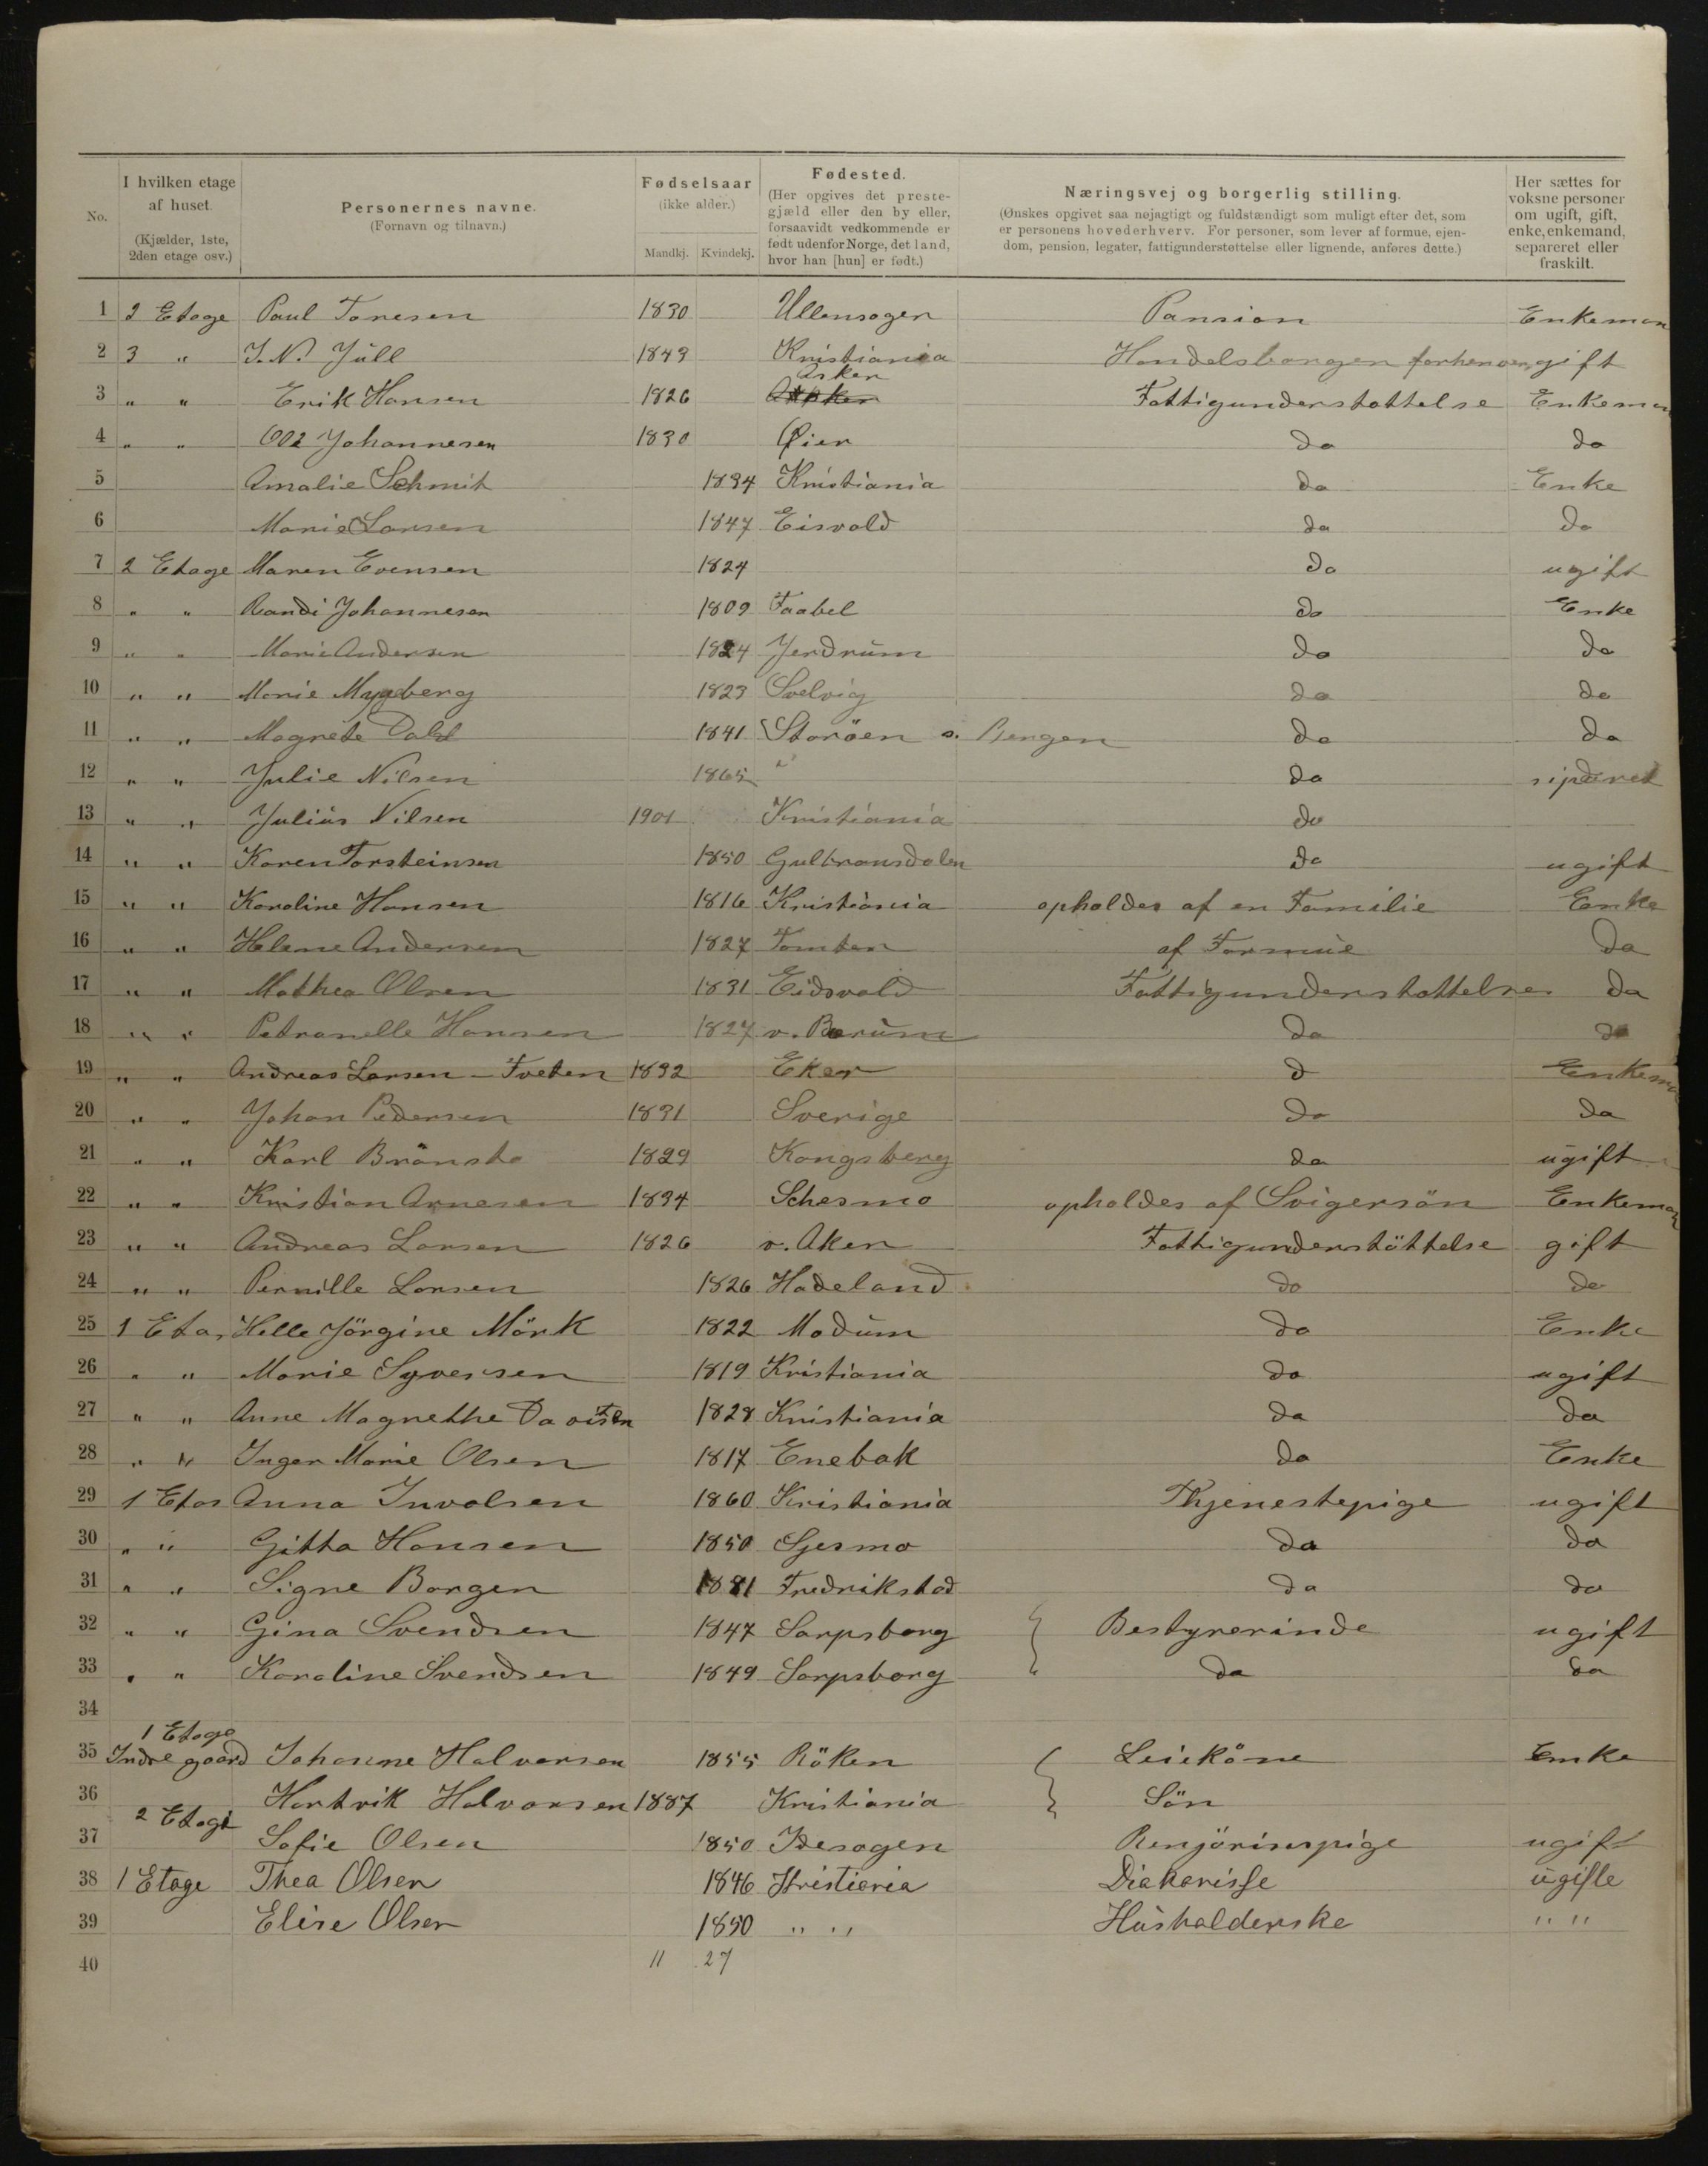 No.
I hvilken etage af huset. (Kjælder, 1ste, 2den etage osv.)
Personernes navne. (Fornavn og tilnavn.)
Fødselsaar (ikke alder.) Mandkj. Kvindekj.
Fødested. (Her opgives det prestegjæld eller den by eller, forsaavidt vedkommende er født udenfor Norge, det land, hvor han [hun] er født.)
Næringsvej og borgerlig stilling. (Ønskes opgivet saa nøjagtigt og fuldstændigt som muligt efter det, som er personens hovederhverv. For personer, som lever af formue, ejendom, pension, legater, fattigunderstøttelse eller lignende, anføres dette.)
Her sættes for voksne personer om ugift, gift, enke, enkemand, separeret eller fraskilt.
1 2 Etage Paul Toresen 1830 Ullensager Pansion Enkeman
2 3 " J. N. Jüll 1843 Kristiania Handelsborger gift
3 " " Erik Hansen 1826 Asker Fattigunderstottelse Enkeman
4 " " Ole Johannesen 1830 Øier do do
5 Amalie Schmit 1834 Kristiania do Enke
6 Marie Larsen 1847 Eisvold do do
7 2 Etage Maren Evensen 1824 do ugift
8 " " Randi Johannesen 1809 Faabel do Enke
9 " " Marie Andersen 1824 Jerdrum do do
10 " " Marie Mygberg 1823 Svelvig do do
11 " " Magrete Dahl 1841 Storöen v. Bergen do do
12 " " Julie Nilsen 1865 " do siperet
13 " " Juliüs Nilsen 1901 Kristiania do
14 " " Karen Torsteinsen 1850 Gulbransdalen do ugift
15 " " Karoline Hansen 1816 Kristiania opholdes af en Familie Enke
16 " " Helene Andersen 1827 Tomten af Formue do
17 " " Mathea Olsen 1831 Eidsvold Fattigunderstottelse do
18 " " Petronelle Hansen 1827 v. Bærüm do do
19 " " Andreas Larsen - Tveten 1832 Eker d Enkeman
20 " " Johan Pedersen 1831 Sverige do do
21 " " Karl Brönsto 1829 Kongsberg do ugift
22 " " Kristian Arnesen 1834 Schesmo opholdes af Svigersön Enkeman
23 " " Andreas Larsen 1826 v. Aker Fattigunderstöttelse gift
24 " " Pernille Larsen 1826 Hadeland do do
25 1 Eta. Helle Jörgine Mörk 1822 Modüm do Enke
26 " " Marie Syversen 1819 Kristiania do ugift
27 " " Anne Magrethe Davisen 1828 Kristiania do do
28 " " Inger Marie Olsen 1817 Enebak do Enke
29 1 Etas Anna Juvolsen 1860 Kristiania Thjenestepige ugift
30 " " Gitta Hansen 1850 Sjesmo do do
31 " " Signe Borgen 1881 Fredrikstad do do
32 " " Gina Svendsen 1847 Sarpsborg Bestyrerinde ugift
33 " " Karoline Svendsen 1849 Sarpsborg do do
34
35 1 Etage Indre gaard Johanne Halvorsen 1855 Röken Leieköne Enke
36 Hartvik Halvorsen 1887 Kristiania Sön
37 2 Etage Sofie Olsen 1850 Idesogen Renjöringspige ugift
38 1 Etage Thea Olsen 1846 Kristiania Diakonisse ügifte
39 Elise Olsen 1850 " " Hüsholderske " "
40 11 27